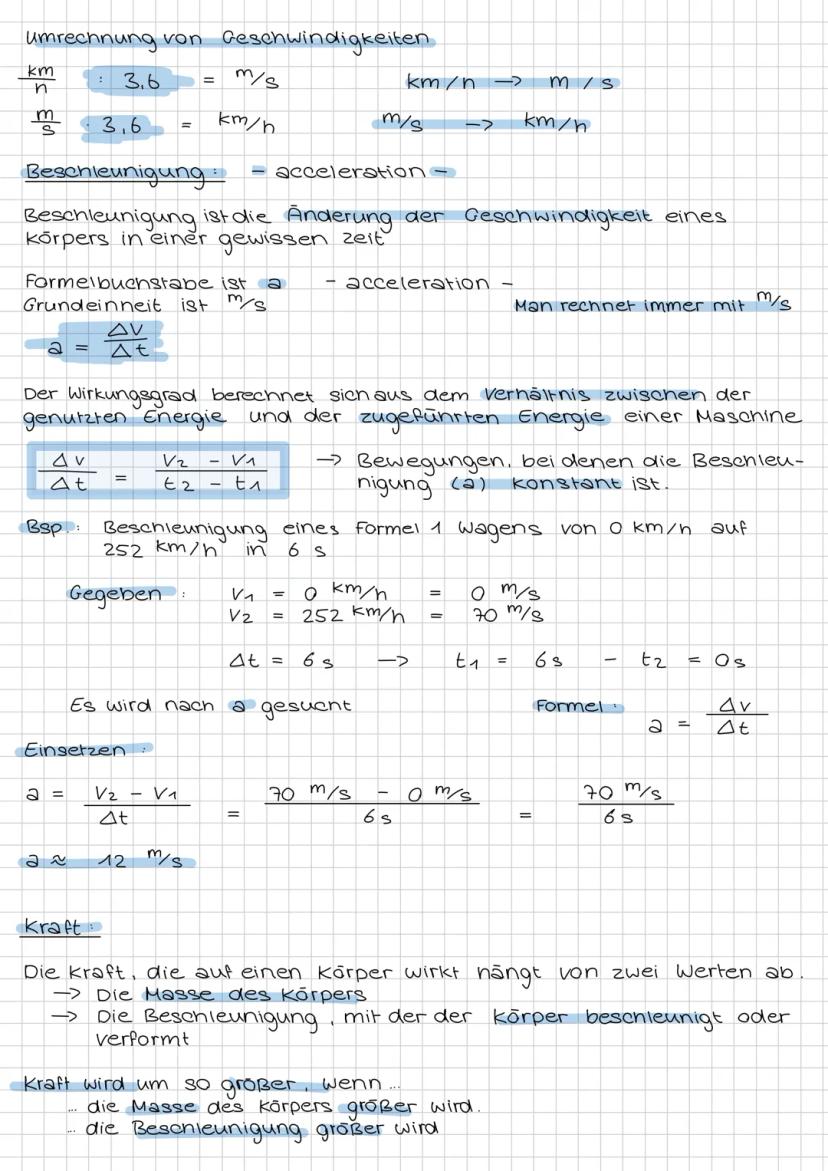 Umrechnung von Geschwindigkeiten
km/h : 3,6 = m/s km/h -> m/s
m/s · 3,6 = km/h m/s -> km/h
Beschleunigung: - acceleration -
Beschleunigung ist die Änderung der Geschwindigkeit eines
Körpers in einer gewissen Zeit
Formelbuchstabe ist a - acceleration -
Grundeinheit ist m/s Man rechnet immer mit m/s
a = Δv/Δt
Der Wirkungsgrad berechnet sich aus dem Verhältnis zwischen der
genutzten Energie und der zugeführten Energie einer Maschine
Δv/Δt = V2 - V1/t2 - t1 -> Bewegungen, bei denen die Beschleu-
nigung (a) konstant ist.
Bsp.: Beschleunigung eines Formel 1 Wagens von 0 km/h auf
252 km/h in 6 s
Gegeben: V1 = 0 km/h = 0 m/s
V2 = 252 km/h = 70 m/s
Δt = 6s -> t1 = 6s - t2 = 0s
Es wird nach a gesucht Formel: a = Δv/Δt
Einsetzen:
a = V2 - V1/Δt = 70 m/s - 0 m/s/6s = 70 m/s/6s
a ≈ 12 m/s
Kraft:
Die Kraft, die auf einen Körper wirkt hängt von zwei Werten ab.
-> Die Masse des Körpers
-> Die Beschleunigung, mit der der Körper beschleunigt oder
verformt
Kraft wird um so größer, wenn ...
... die Masse des Körpers größer wird.
... die Beschleunigung größer wird